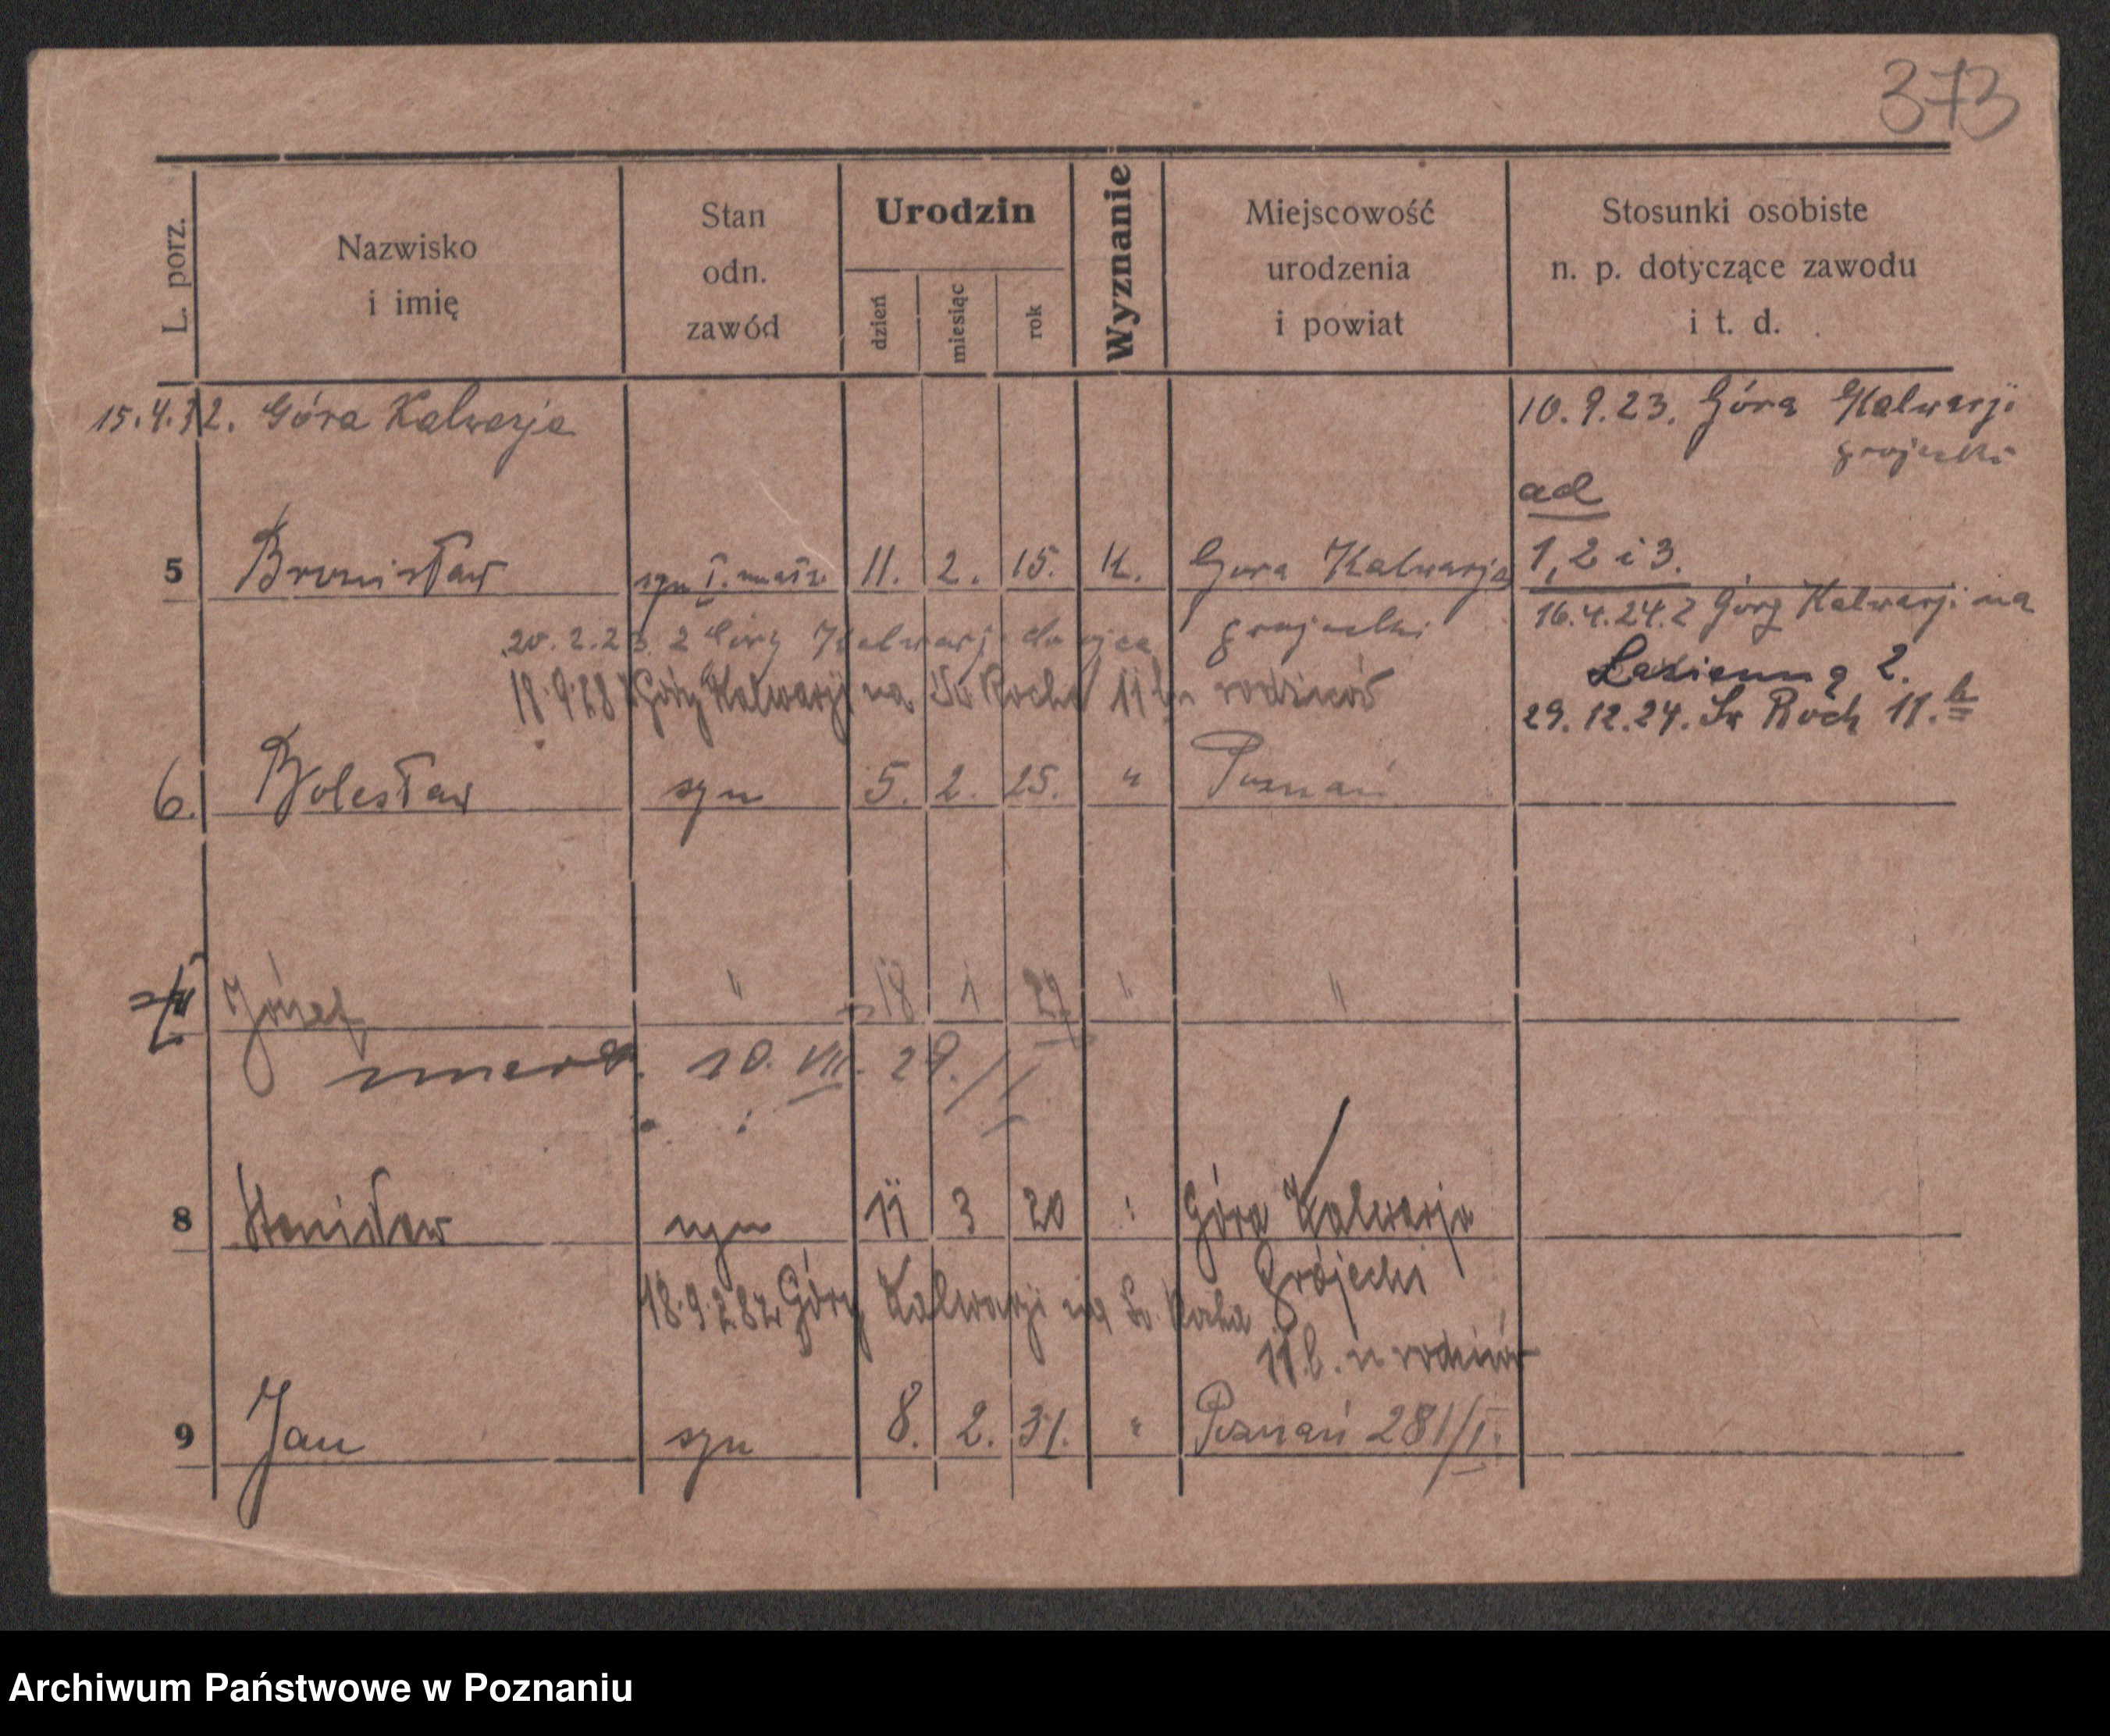 373
L. porz.
Nazwisko
i imię
Stan
odn.
zawód
Urodzin
dzień
miesiąc
rok
Wyznanie
Miejscowość
urodzenia
i powiat
Stosunki osobiste
n. p. dotyczące zawodu
i t. d.
15.4.32. Góra Kalwarja
10.9.23. Góra Kalwarji
grojecki
ad
5 Bronisław syn I. małż. 11. 2. 15. K. Gora Kalwarja 1, 2 i 3.
16.4.24. z Górz Kalwarji na
20.2.23. z Góry Kalwarji do ojca grojecki
Łazienną 2.
18.9.28 z Góry Kalwarji na Św Rocha 11 b u rodziców
29.12.24. Sw Roch 11.b
6. Bolesław syn 5. 2. 25. " Poznań
Józef " 18 1 27 " "
zmarł. 10. VII. 29.
8 Stanisław syn 11 3 20 " Góra Kalwarja
Grójecki
18.9.28 z Góry Kalwarji na Św. Rocha
11.b. u rodziców
9 Jan syn 8. 2. 31. " Poznań 281/I.
Archiwum Państwowe w Poznaniu